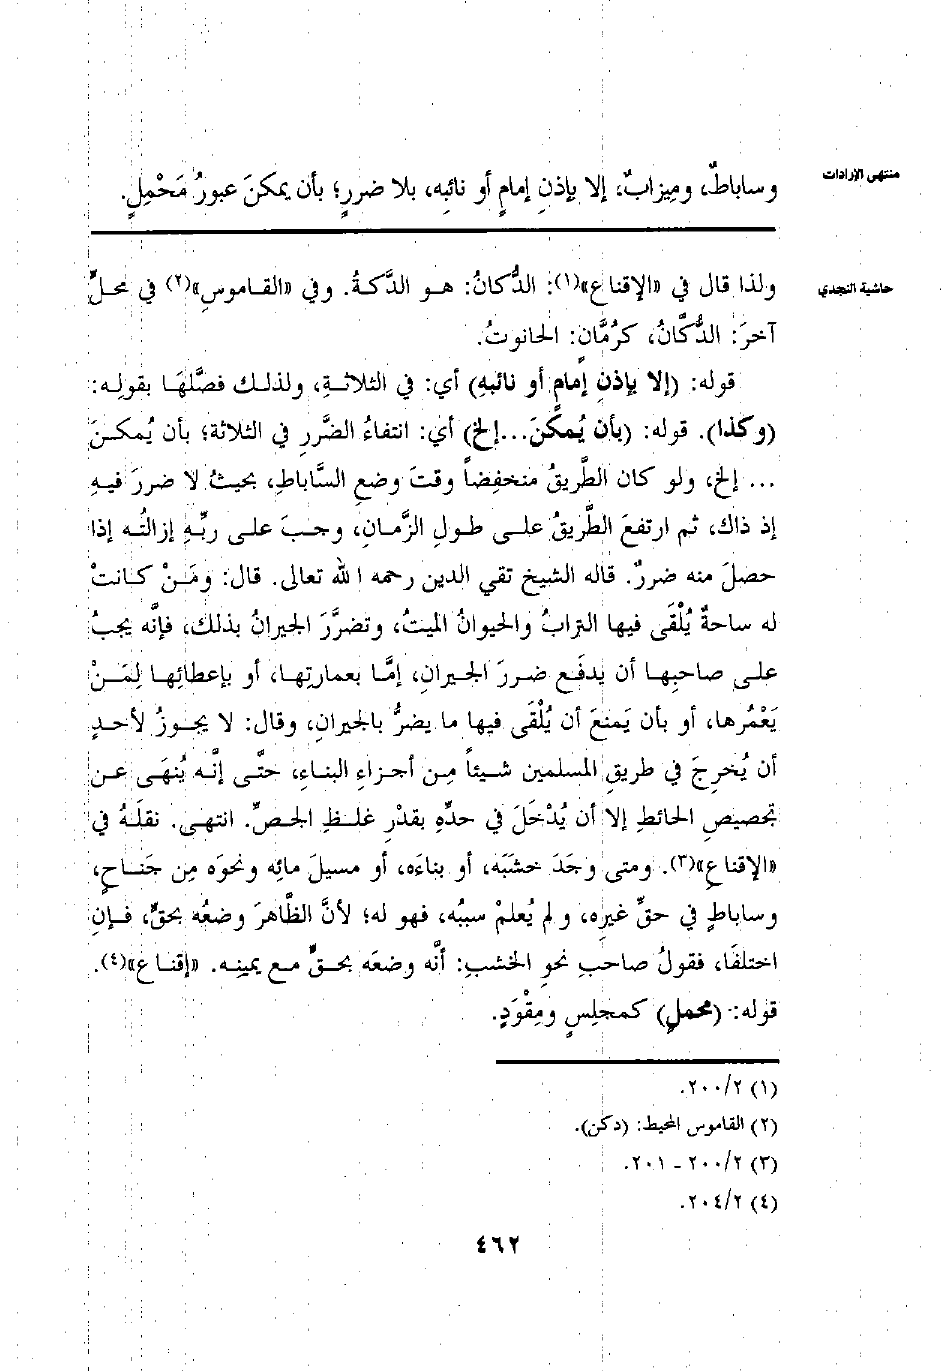 منتهى الإرادات
وساباطٌ، وميزابٌ، إلا بإذنِ إمامٍ أو نائبِه، بلا ضررٍ؛ بأن يمكنَ عبورُ مَحْمِلٍ.
حاشية النجدي
ولذا قال في «الإقناع»(١): الدُّكانُ: هو الدَّكةُ. وفي «القاموسِ»(٢) في محلٍّ
آخرَ: الدُّكَّانُ، كرُمَّان: الحانوتُ.
قوله: (إلا بإذنِ إمامٍ أو نائبهِ) أي: في الثلاثةِ، ولذلك فصَّلهَا بقولِه:
(وكذا). قوله: (بأن يُمكنَ...إلخ) أي: انتفاءُ الضَّررِ في الثلاثة؛ بأن يُمكنَ
... إلخ، ولو كان الطَّريقُ منخفِضاً وقتَ وضعِ السَّاباطِ، بحيثُ لا ضررَ فيهِ
إذ ذاك، ثم ارتفعَ الطَّريقُ على طولِ الزَّمانِ، وجبَ على ربِّهِ إزالتُه إذا
حصلَ منه ضررٌ. قاله الشيخ تقي الدين رحمه الله تعالى. قال: ومَنْ كانتْ
له ساحةٌ يُلْقَى فيها الترابُ والحيوانُ الميتُ، وتضرَّرَ الجيرانُ بذلك، فإنَّه يجبُ
على صاحبِها أن يدفَع ضررَ الجيرانِ، إمَّا بعمارتِها، أو بإعطائِها لِمَنْ
يَعْمُرها، أو بأن يَمنعَ أن يُلْقَى فيها ما يضرُّ بالجيرانِ، وقال: لا يجوزُ لأحدٍ
أن يُخرِجَ في طريقِ المسلمين شيئاً مِن أجزاءِ البناءِ، حتَّى إنَّه يُنهَى عن
تجصيصِ الحائطِ إلا أن يُدْخَلَ في حدِّه بقدْرِ غلظِ الجصِّ. انتهى. نقلَهُ في
«الإقناعِ»(٣). ومتى وجَدَ خشبَه، أو بناءَه، أو مسيلَ مائِه ونحوَه مِن جَناحٍ،
وساباطٍ في حقِّ غيرِه، ولم يُعلمْ سببُه، فهو له؛ لأنَّ الظَّاهرَ وضعُه بحقٍّ، فإنِ
اختلفَا، فقولُ صاحبِ نحوِ الخشبِ: أنَّه وضعَه بحقٍّ مع يمينِه. «إقناع»(٤).
قوله: (محملٍ) كمجلِسٍ ومِقْوَدٍ.
(١) ٢٠٠/٢.
(٢) القاموس المحيط: (دكن).
(٣) ٢٠٠/٢ ـ ٢٠١.
(٤) ٢٠٤/٢.
٤٦٢